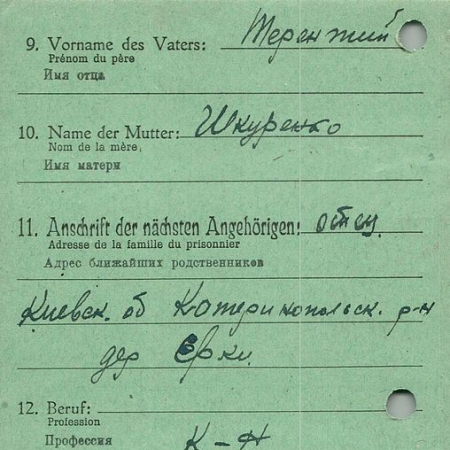 9. Vorname des Vaters: Терентий
Prénom du père
Имя отца
10. Name der Mutter: Шкуренко
Nom de la mère
Имя матери
11. Anschrift der nächsten Angehörigen: отец
Adresse de la famille du prisonnier
Адрес ближайших родственников
Киевск. об Котеринопольск. р-н
дер Ерки
12. Beruf:
Profession
Профессия К-Н